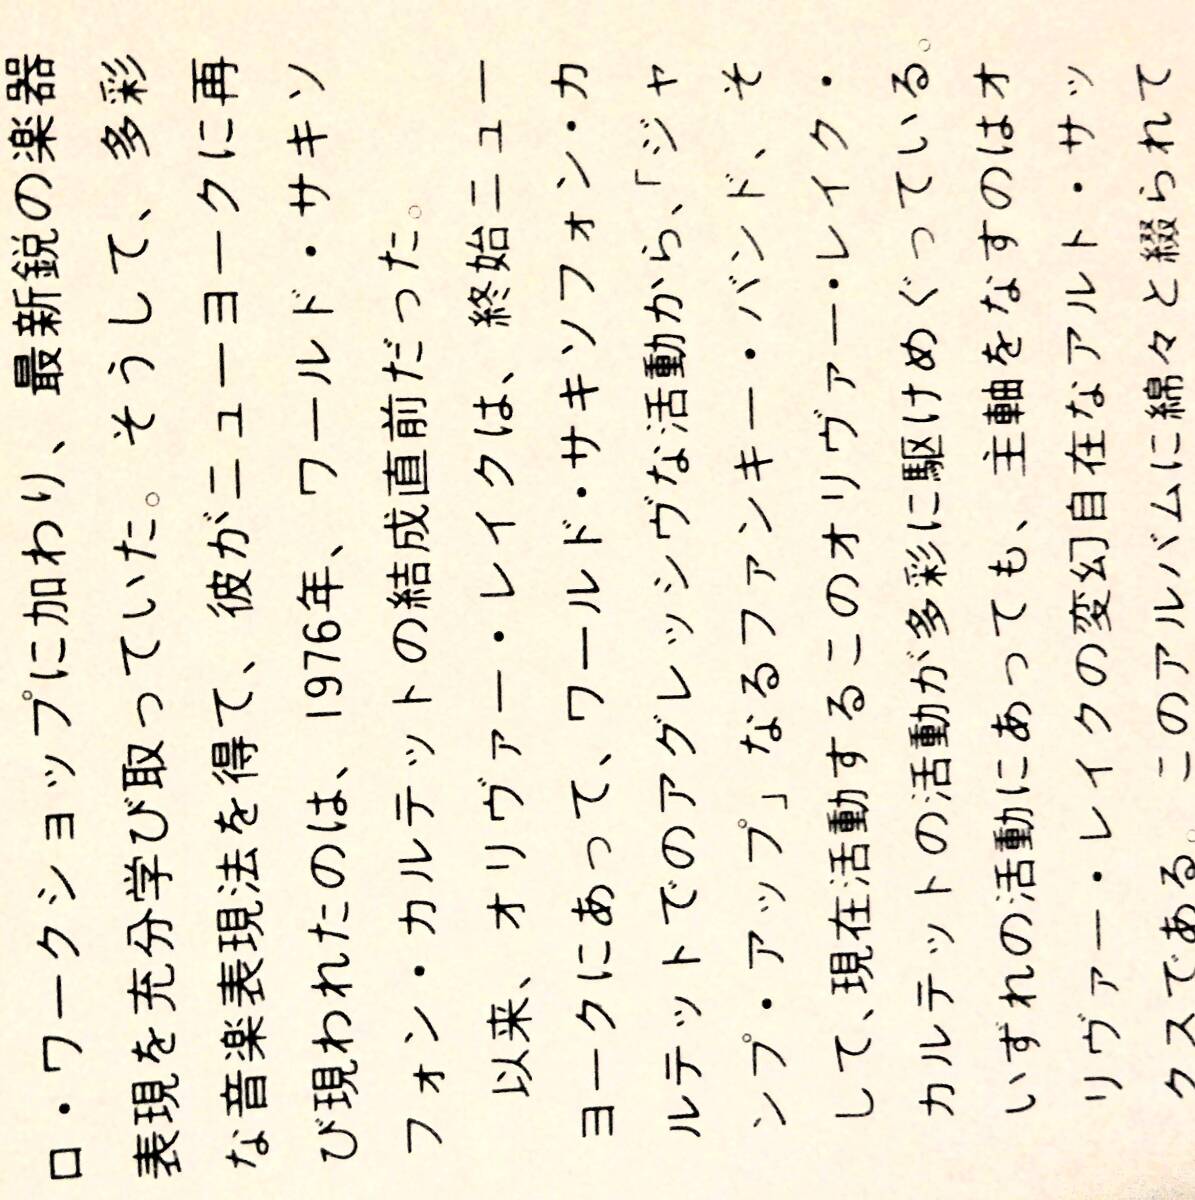 ロ・ワークショップに加わり、最新鋭の楽器
表現を充分学び取っていた。そうして、多彩
な音楽表現法を得て、彼がニューヨークに再
び現われたのは、1976年、ワールド・サキソ
フォン・カルテットの結成直前だった。
以来、オリヴァー・レイクは、終始ニュー
ヨークにあって、ワールド・サキソフォン・カ
ルテットでのアグレッシヴな活動から、「ジャ
ンプ・アップ」なるファンキー・バンド、そ
して、現在活動するこのオリヴァー・レイク・
カルテットの活動が多彩に駆けめぐっている。
いずれの活動にあっても、主軸をなすのはオ
リヴァー・レイクの変幻自在なアルト・サッ
クスである。このアルバムに綿々と綴られて